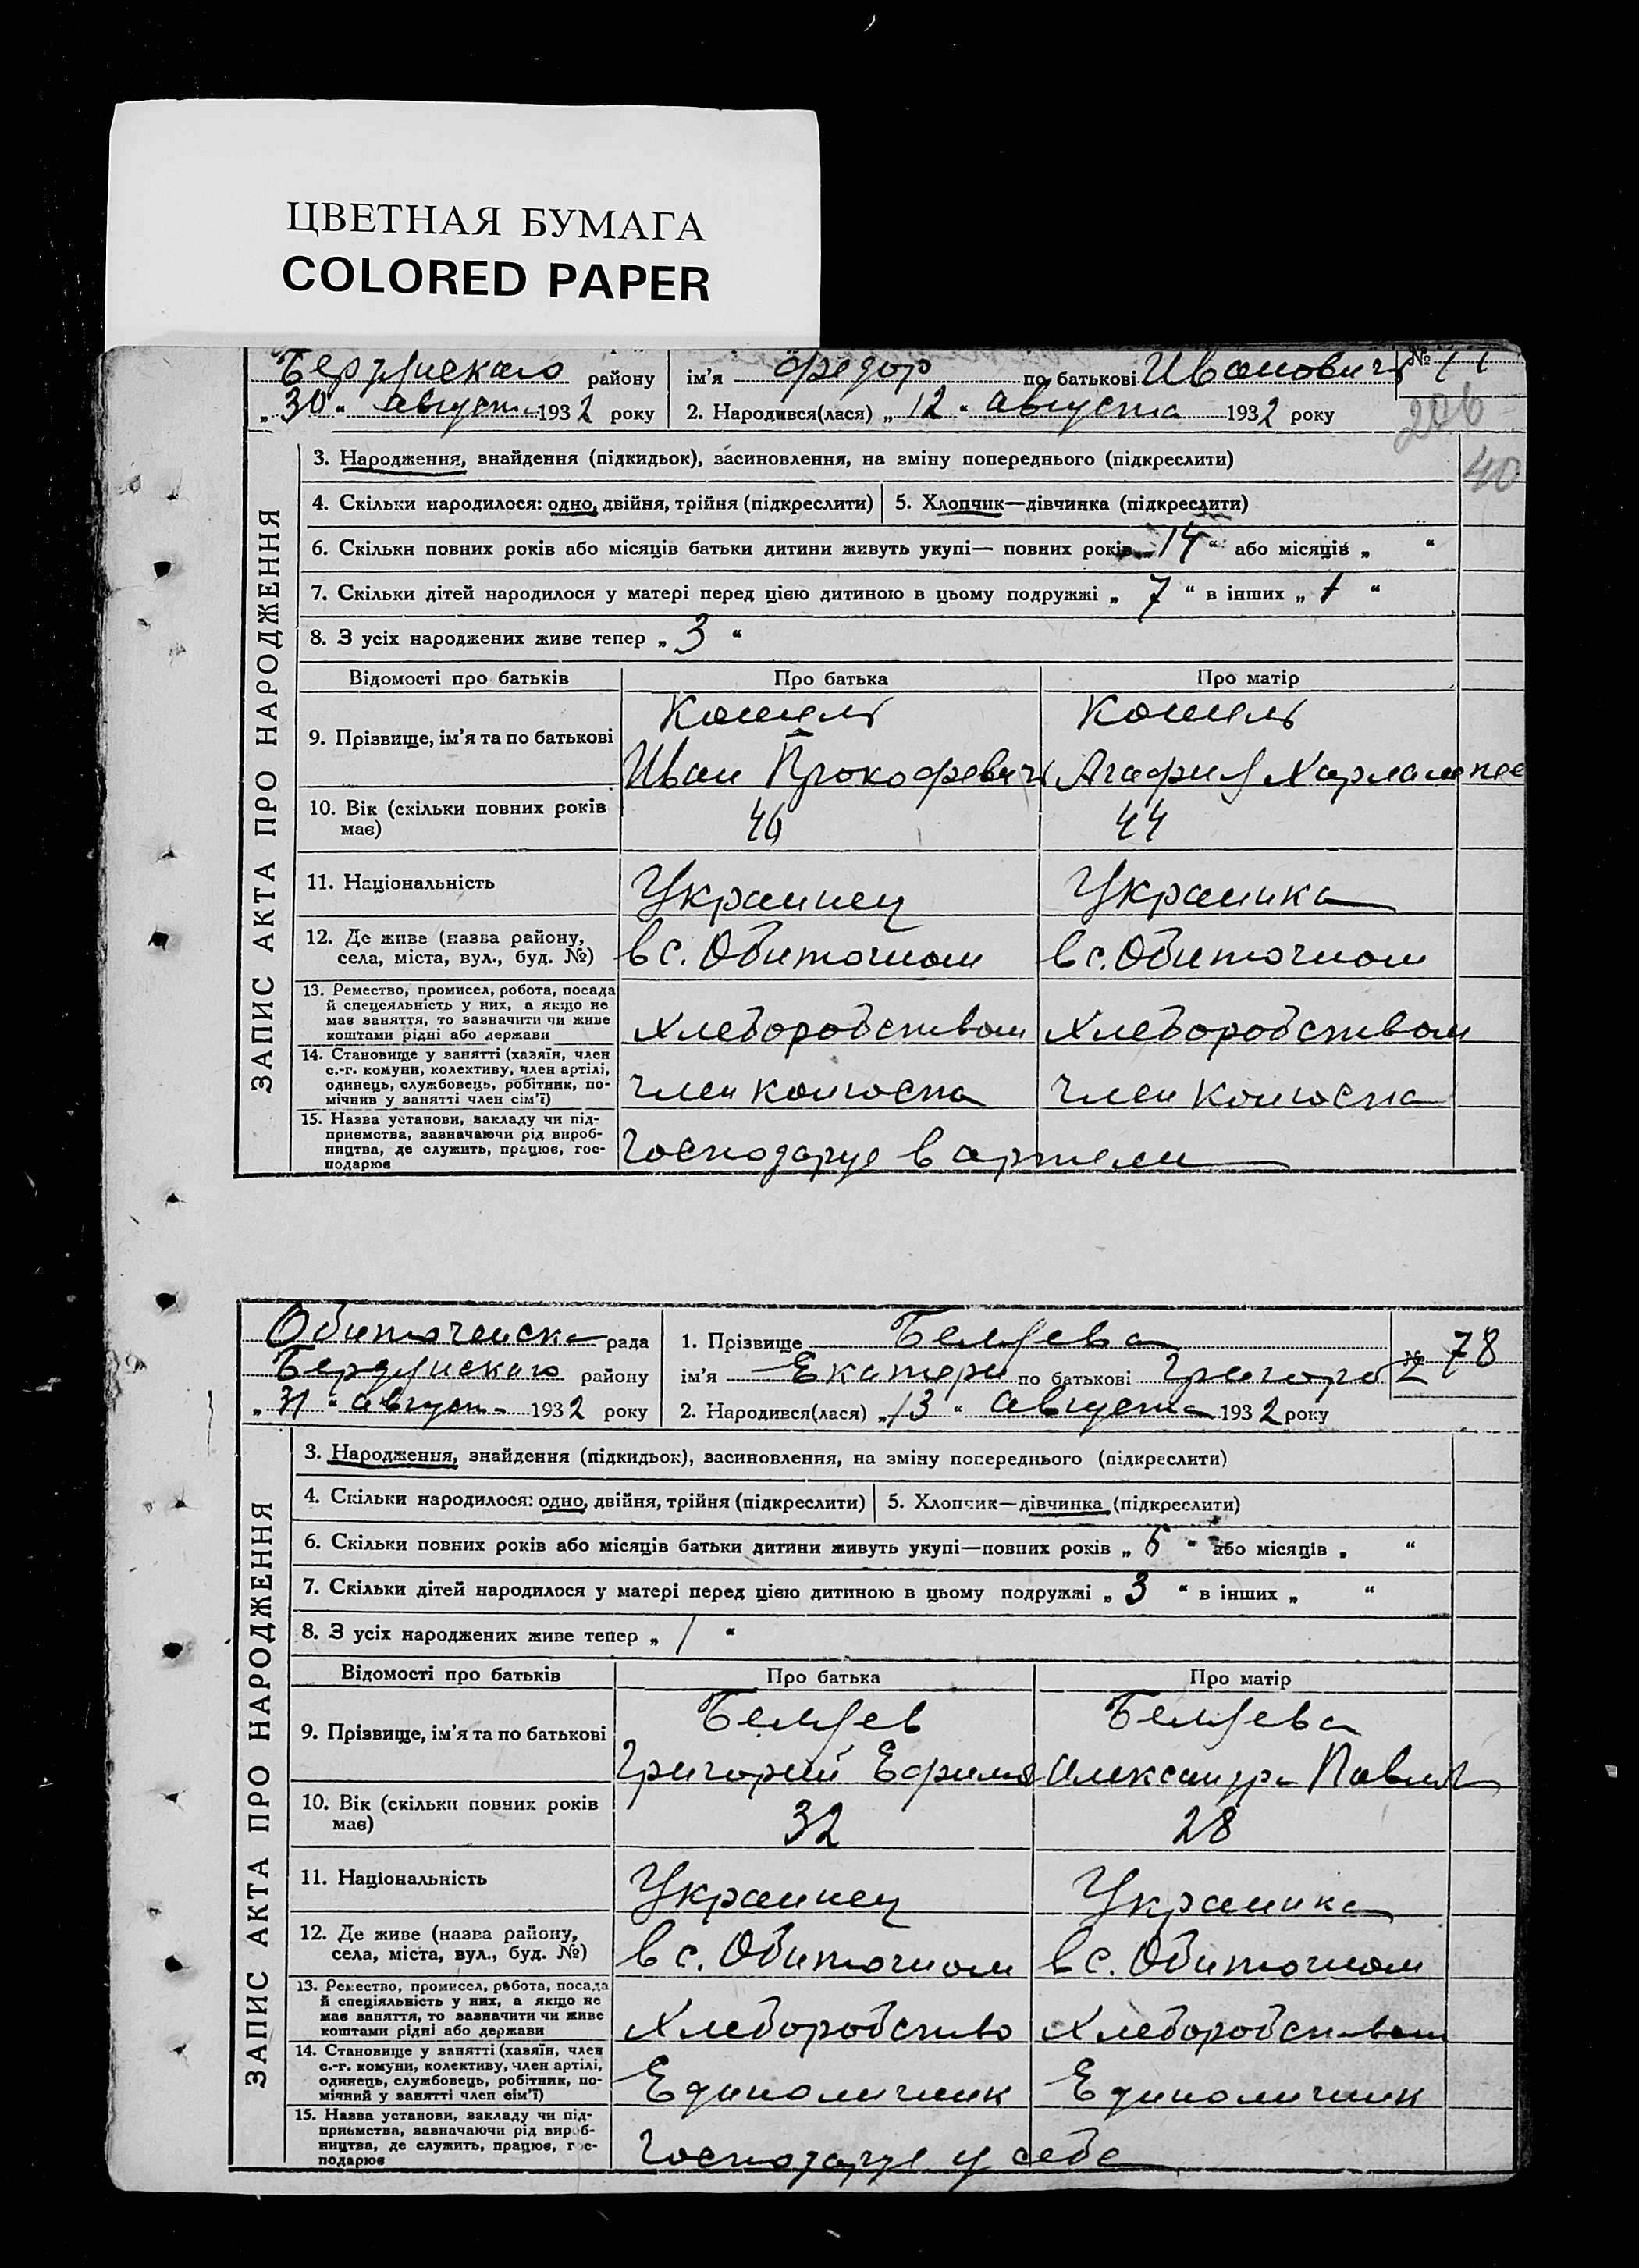 ЦВЕТНАЯ БУМАГА
COLORED PAPER
Бердянскаго району ім’я Федор по батькові Иванович №
„ 30 “ августа 1932 року 2. Народився(лася) „ 12 “ августа 1932 року 206
40
ЗАПИС АКТА ПРО НАРОДЖЕННЯ
3. Народження, знайдення (підкидьок), засиновлення, на зміну попереднього (підкреслити)
4. Скільки народилося: одно, двійня, трійня (підкреслити) 5. Хлопчик—дівчинка (підкреслити)
6. Скільки повних років або місяців батьки дитини живуть укупі— повних років „ 14 “ або місяців „ “
7. Скільки дітей народилося у матері перед цією дитиною в цьому подружжі „ 7 “ в інших „ “
8. З усіх народжених живе тепер „ 3 “
Відомості про батьків Про батька Про матір
Кошель Кошель
9. Прізвище, ім’я та по батькові
Иван Прокофевич Агафия Харлампее
10. Вік (скільки повних років має) 46 44
11. Національність Украинец Украинка
12. Де живе (назва району,
села, міста, вул., буд. №) в с. Обиточном в с. Обиточном
13. Ремество, промисел, робота, посада
й спецеяльність у них, а якщо не
має заняття, то зазначити чи живе
коштами рідні або держави Хлеборобством Хлеборобством
14. Становище у занятті (хазяїн, член
с.-г. комуни, колективу, член артілі,
одинець, службовець, робітник, по-
мічник у занятті член сім’ї) член колгоспа член колгоспа
15. Назва установи, закладу чи під-
приємства, зазначаючи рід вироб-
ництва, де служить, працює, гос-
подарює Господарує в артели
Обиточенска рада 1. Прізвище Беляева № 78
Бердянскаго району ім’я Екатери по батькові Григоро
„ 31 “ август 1932 року 2. Народився(лася) „ 13 “ августа 1932 року
ЗАПИС АКТА ПРО НАРОДЖЕННЯ
3. Народження, знайдення (підкидьок), засиновлення, на зміну попереднього (підкреслити)
4. Скільки народилося: одно, двійня, трійня (підкреслити) 5. Хлопчик—дівчинка (підкреслити)
6. Скільки повних років або місяців батьки дитини живуть укупі—повних років „ 6 “ або місяців „ “
7. Скільки дітей народилося у матері перед цією дитиною в цьому подружжі „ 3 “ в інших „ “
8. З усіх народжених живе тепер „ 1 “
Відомості про батьків Про батька Про матір
Беляев Беляева
9. Прізвище, ім’я та по батькові
Григорий Ефимов Александра Павлов
10. Вік (скільки повних років
має) 32 28
11. Національність Украинец Украинка
12. Де живе (назва району,
села, міста, вул., буд. №) в с. Обиточном в с. Обиточном
13. Ремество, промисел, робота, посада
й спеціяльність у них, а якщо не
має заняття, то зазначити чи живе
коштами рідні або держави Хлеборобство Хлеборобством
14. Становище у занятті (хазяїн, член
с.-г. комуни, колективу, член артілі,
одинець, службовець, робітник, по-
мічний у занятті член сім’ї) Единоличник Единоличник
15. Назва установи, закладу чи під-
приємства, зазначаючи рід вироб-
ництва, де служить, працює, гос-
подарює Господарує у себе